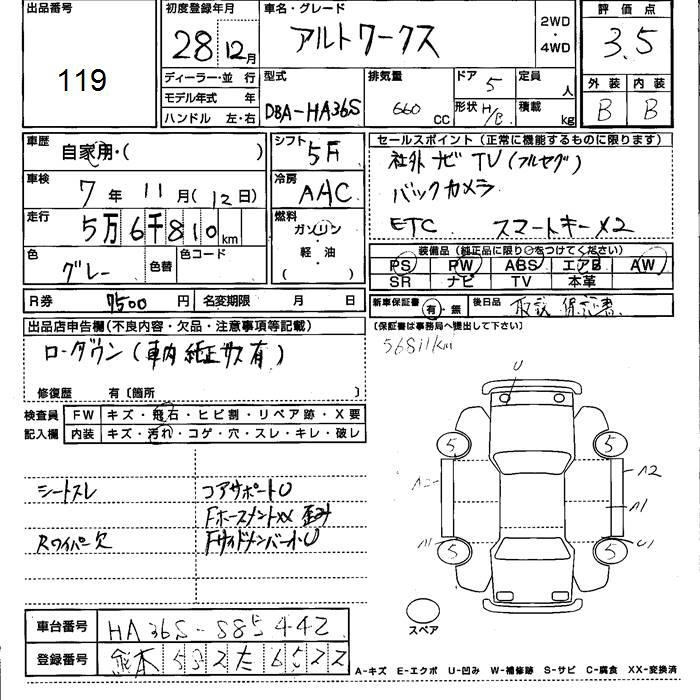 出品番号
119
初度登録年月
28年12月
ディーラー・並 行
モデル年式 年
ハンドル 左・右
車名・グレード
アルトワークス
2WD
・
4WD
評価点
3.5
型式
DBA-HA36S
排気量
660 CC
ドア 5
形状 H/B
定員 人
積載 kg
外装 内装
B B
車歴
自家用・( )
車検
7年11月(12日)
走行
5万6千810km
色
グレー
色替
色コード
R券 9500円
名変期限 月 日
シフト
5F
冷房
AAC
燃料
ガソリン
軽・油
( )
セールスポイント(正常に機能するものに限ります)
社外ナビ TV(フルセグ)
バックカメラ
ETC スマートキー×2
装備品(純正品に限り○をつけてください)
PS PW ABS エアB AW
SR ナビ TV 本革
新車保証書
有・無
後日品
取説 保証書
(保証書は事務局へ提出して下さい)
56811km
出品店申告欄(不良内容・欠品・注意事項等記載)
ローダウン(車内純正サス有)
修復歴 有〔箇所 〕
検査員 FW キズ・飛石・ヒビ割・リペア跡・X要
記入欄 内装 キズ・汚れ・コゲ・穴・スレ・キレ・破レ
シートスレ
コアサポートU
FホースメントXX 歪み
Rワイパー欠
FサイドメンバーU
U
5
5
A2
A2
A1
A1
5
5
U1
スペア
車台番号 HA36S-885442
登録番号 熊本532た6522
A-キズ E-エクボ U-凹み W-補修跡 S-サビ C-腐食 XX-変換済